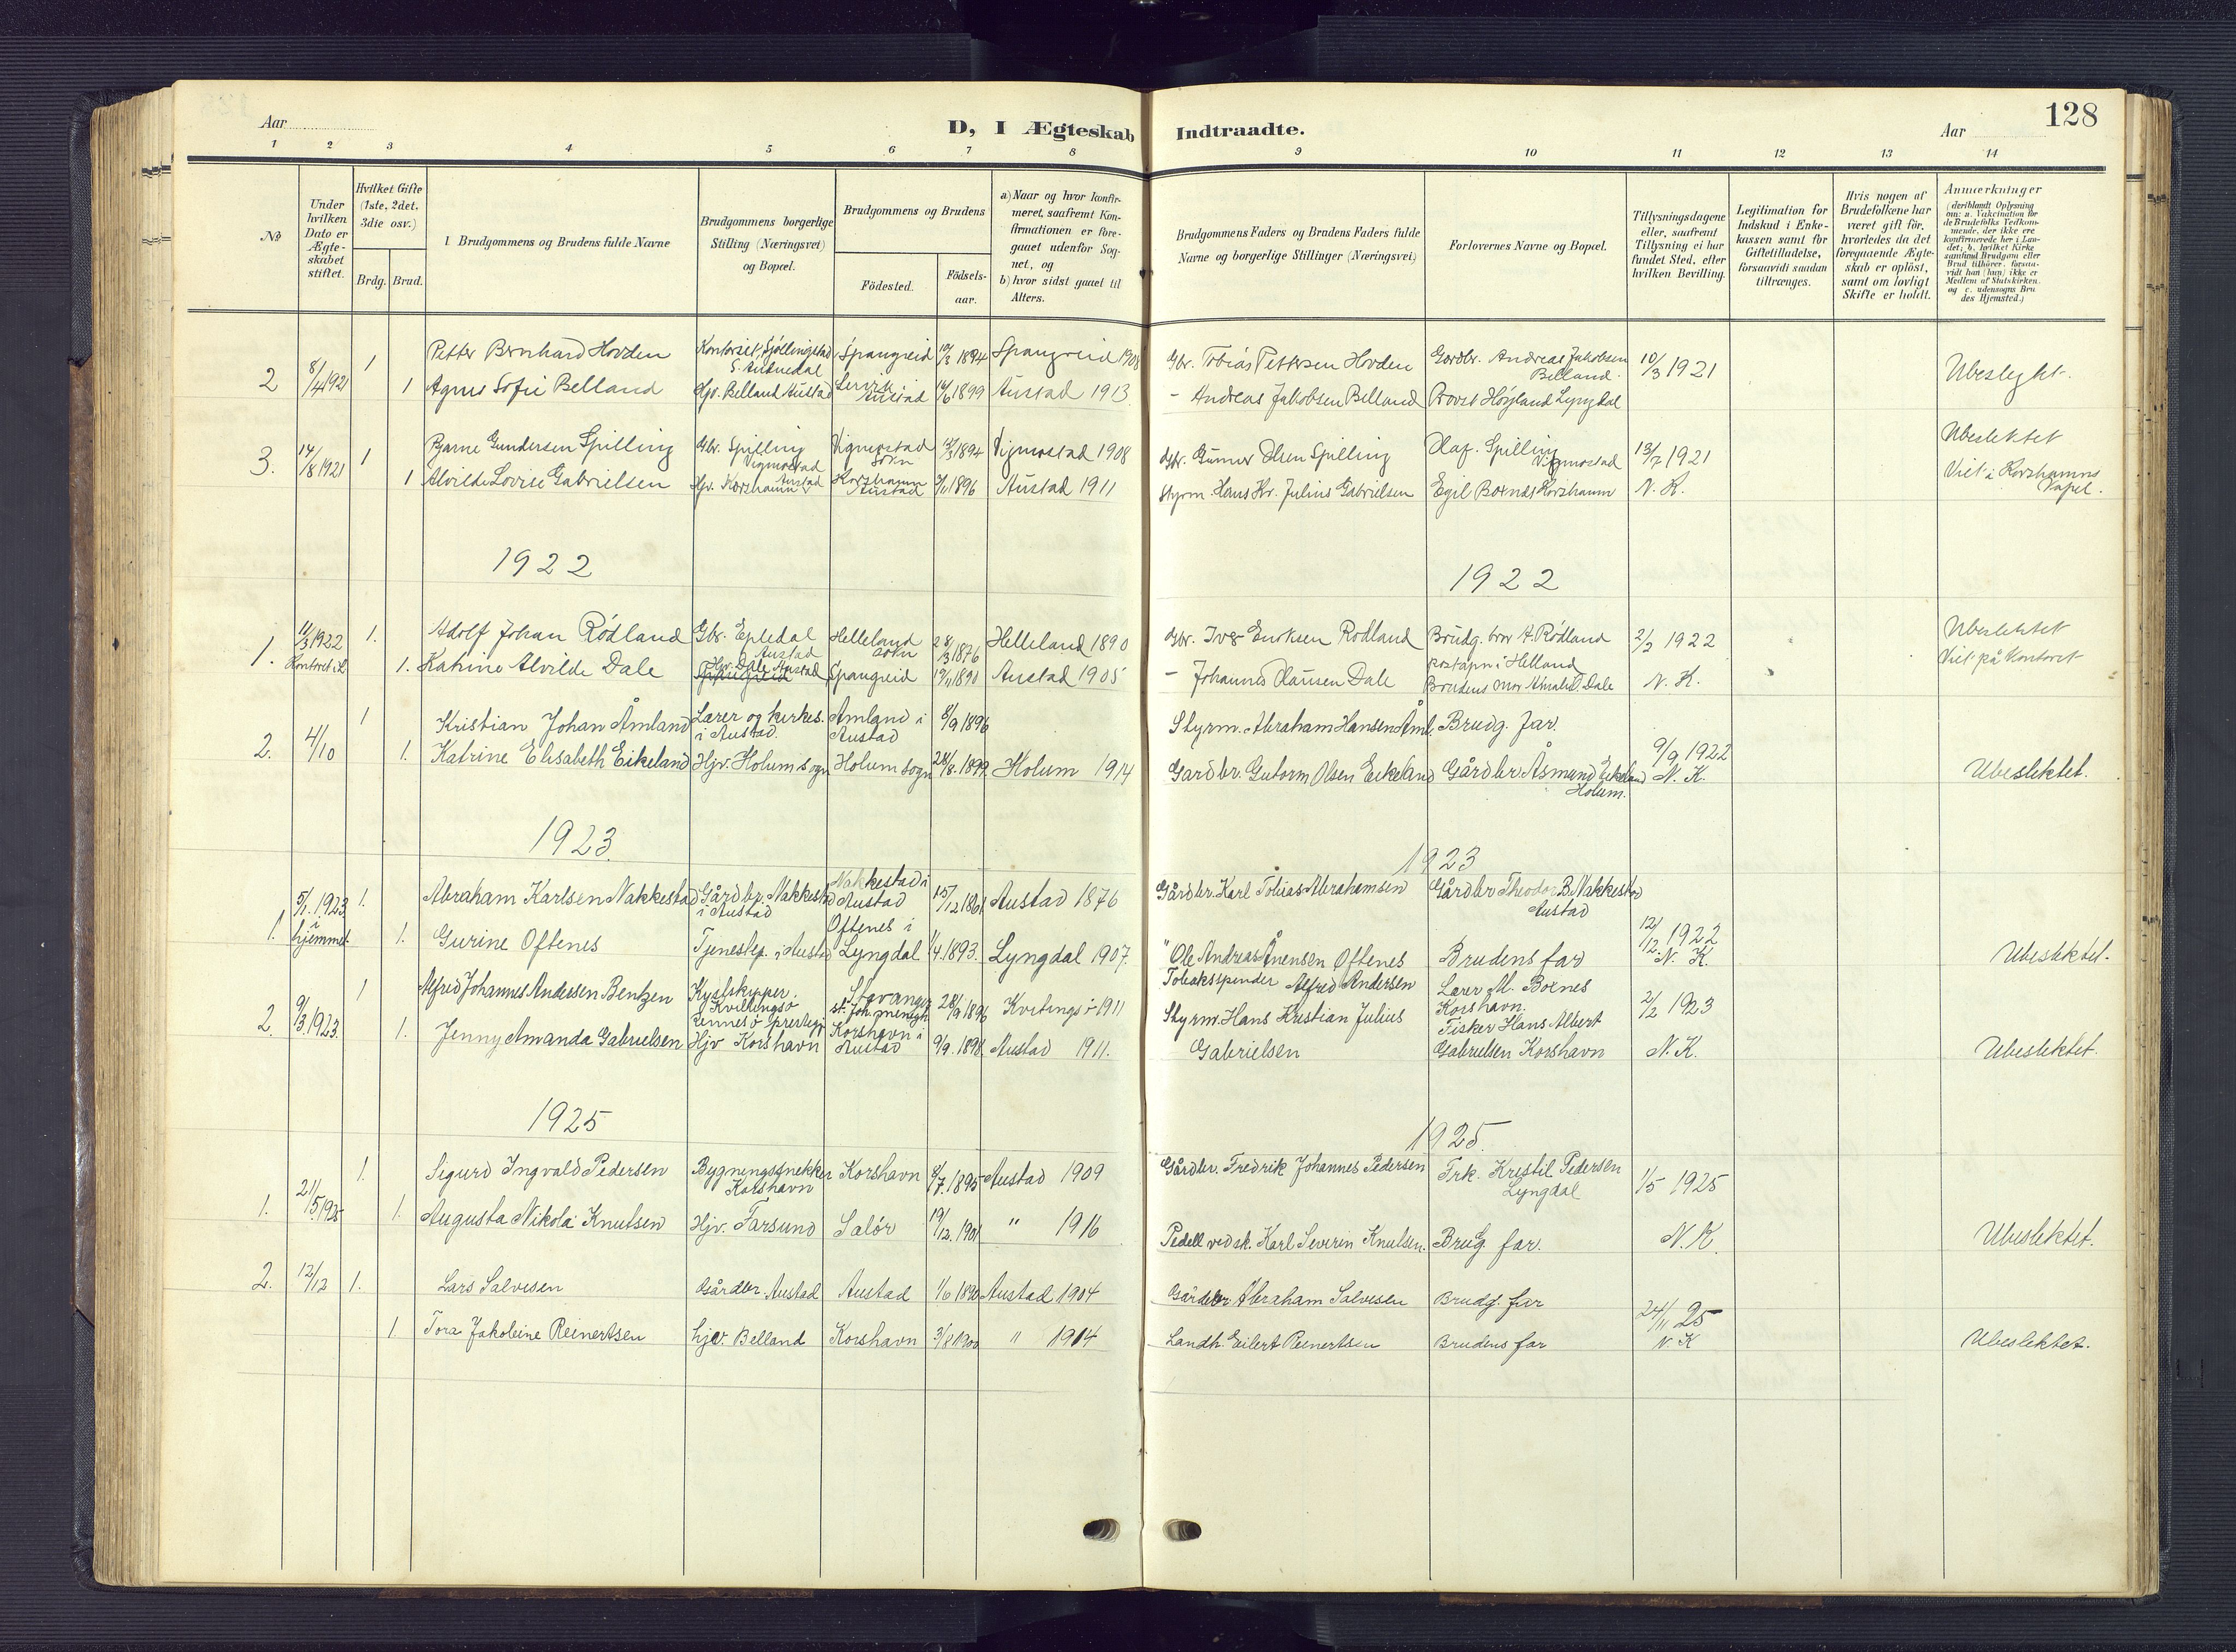 128
Aar
D, I Ægteskab
Indtraadte.
Aar
1 2 3 4 5 6 7 8
9 10 11 12 13 14
No
Under hvilken Dato er Ægteskabet stiftet.
Hvilket Gifte (1ste, 2det, 3die osv.)
Brdg. Brud.
Brudgommens og Brudens fulde Navne
Brudgommens borgerlige Stilling (Næringsvei) og Bopæl.
Brudgommens og Brudens
Födested.
Födsels-aar.
a) Naar og hvor konfir-
meret, saafremt Kon-
firmationen er fore-
gaaet udenfor Sog-
net, og
b) hvor sidst gaaet til
Alters.
Brudgommens Faders og Brudens Faders fulde
Navne og borgerlige Stillinger (Næringsvei)
Forlovernes Navne og Bopæl.
Tillysningsdagene
eller, saafremt
Tillysning ei har
fundet Sted, efter
hvilken Bevilling.
Legitimation for
Indskud i Enke-
kassen samt for
Giftetilladelse,
forsaavidt saadan
tiltrænges.
Hvis nogen af
Brudefolkene har
været gift för,
hvorledes da det
foregaaende Ægte-
skab er oplöst,
samt om lovligt
Skifte er holdt.
Anmærkninger
(deriblandt Oplysning
om: a. Vakcination for
de Brudefolks Vedkom-
mende, der ikke ere
konfirmerede her i Lan-
det; b. hvilket Kirke
samfund Brudgom eller
Brud tilhörer, forsaa-
vidt han (hun) ikke er
Medlem af Statskirken.
og c. udensogns Bru
des Hjemsted.)
2 8/4 1921 1 Petter Bernhard Hovden Kontorist, Sjöllingstad S. Audnedal Spangreid 10/3 1894 Spangreid 1908
Gbr. Tobias Pettersen Hovden Gardbr. Andreas Jakobsen Belland 10/3 1921 Ubeslegtet.
1 Agnes Sofie Belland Hjv. Belland Austad Lervik i Austad 14/6 1899 Austad 1913
- Andreas Jakobsen Belland Provst Höyland Lyngdal
3. 14/8 1921 1 Bjarne Gundersen Spilling Gbr. Spilling Vigmostad Vigmostad sokn 1894 Vigmostad 1908
Gbr. Gunner Olsen Spilling Olaf Spilling Vigmostad 13/7 1921 Ubeslektet
1 Alvilde Lovise Gabrielsen Hjv. Korshamn Austad Korshamn Austad 1896 Austad 1911
Styrm. Hans Kr. Julius Gabrielsen Egil Boenes Korshamn N. K. Viet i Korshamns Kapel.
1922
1922
1. 11/3 1922 Kontoret i L. 1. Adolf Johan Rödland Gbr. Epledal Austad Helleland sokn 28/3 1876 Helleland 1890
Gbr. Iver Eriksen Rödland Brudg. bror A. Rödland postapn i Helland 2/3 1922 Ubeslektet
1. Katrine Alvilde Dale Hjv. Dale Austad Spangreid 1890 Austad 1905
- Johannes Clausen Dale Brudens mor Amalie Dale N. K. Viet på Kontoret
2. 4/10 1 Kristian Johan Åmland Lærer og kirkes. i Austad. Åmland i Austad 8/9 1896
Styrm. Abraham Hansen Åml. Brudg. far. 9/9 1922
1. Katrine Elisabeth Eikeland Hjv. Holum sogn Holum sogn 28/8. 1899 Holum 1914
Gardbr. Gutorm Olsen Eikeland Gårdbr Åsmund Eikeland Holum. N. K. Ubeslektet.
1923.
1923
1. 5/1. 1923 i hjemmet 1. Abraham Karlsen Nakkestad Gårdbr. Nakkestad i Austad Nakkestad i Austad 15/12 1861 Austad 1876
Gårdbr. Karl Tobias Abrahamsen Gårdbr Theodor B. Nakkestad Austad 12/12. 1922
1. Gurine Oftenes Tjenestep. i Austad Oftenes i Lyngdal 1/4. 1893. Lyngdal 1907.
" Ole Andreas Ånensen Oftenes Brudens far N. K. Ubeslektet.
2. 9/3. 1923. 1 Alfred Johannes Andersen Bentzen Kystskipper. Kvitingsö Rennesö prestegj. Stavanger St. Joh. menigh. 28/9 1896 Kvitingsö 1911
Tobakspinder Alfred Andersen Lærer M. Boenes Korshavn. 2/2 1923
1. Jenny Amanda Gabrielsen Hjv Korshavn Korshavn i Austad 9/9. 1898. Austad 1911.
Styrm. Hans Kristian Julius Gabrielsen Fisker Hans Albert Gabrielsen Korshavn N. K. Ubeslektet.
1925
1925.
1. 21/5 1925 1. Sigurd Ingvald Pedersen Bygningssnekker Korshavn Korshavn 8/7. 1895 Austad 1909
Gårdbr. Fredrik Johannes Pedersen Frk. Krestil Pedersen Lyngdal 1/5 1925
1. Augusta Nikolai Knutsen Hjv. Farsund Salör 19/12. 1901 " 1916
Pedell ved sk. Karl Severin Knutsen. Brug. far. N. K. Ubeslektet.
2. 12/12 1. Lars Salvesen Gårdbr. Austad Austad 1/6 1890 Austad 1904
Gårdbr Abraham Salvesen Brudg. far 24/11 25
1. Tora Jakobine Reinertsen hjv. Belland Korshavn 3/8 1900 " 1914
Landh. Eilert Reinertsen Brudens far N. K Ubeslektet.